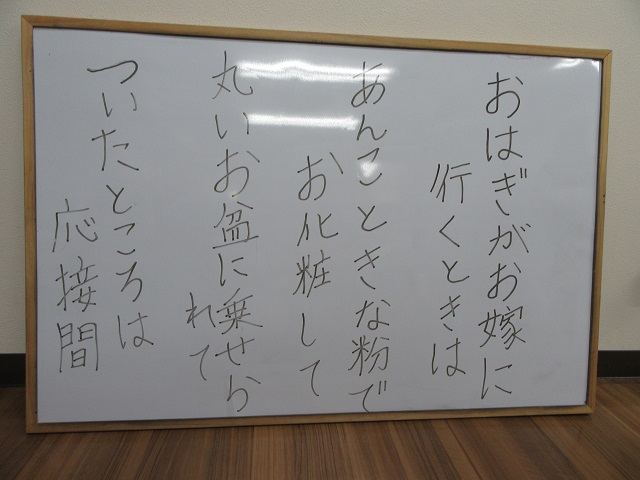 おはぎがお嫁に
行くときは
あんこときな粉で
お化粧して
丸いお盆に乗せら
れて
ついたところは
応接間